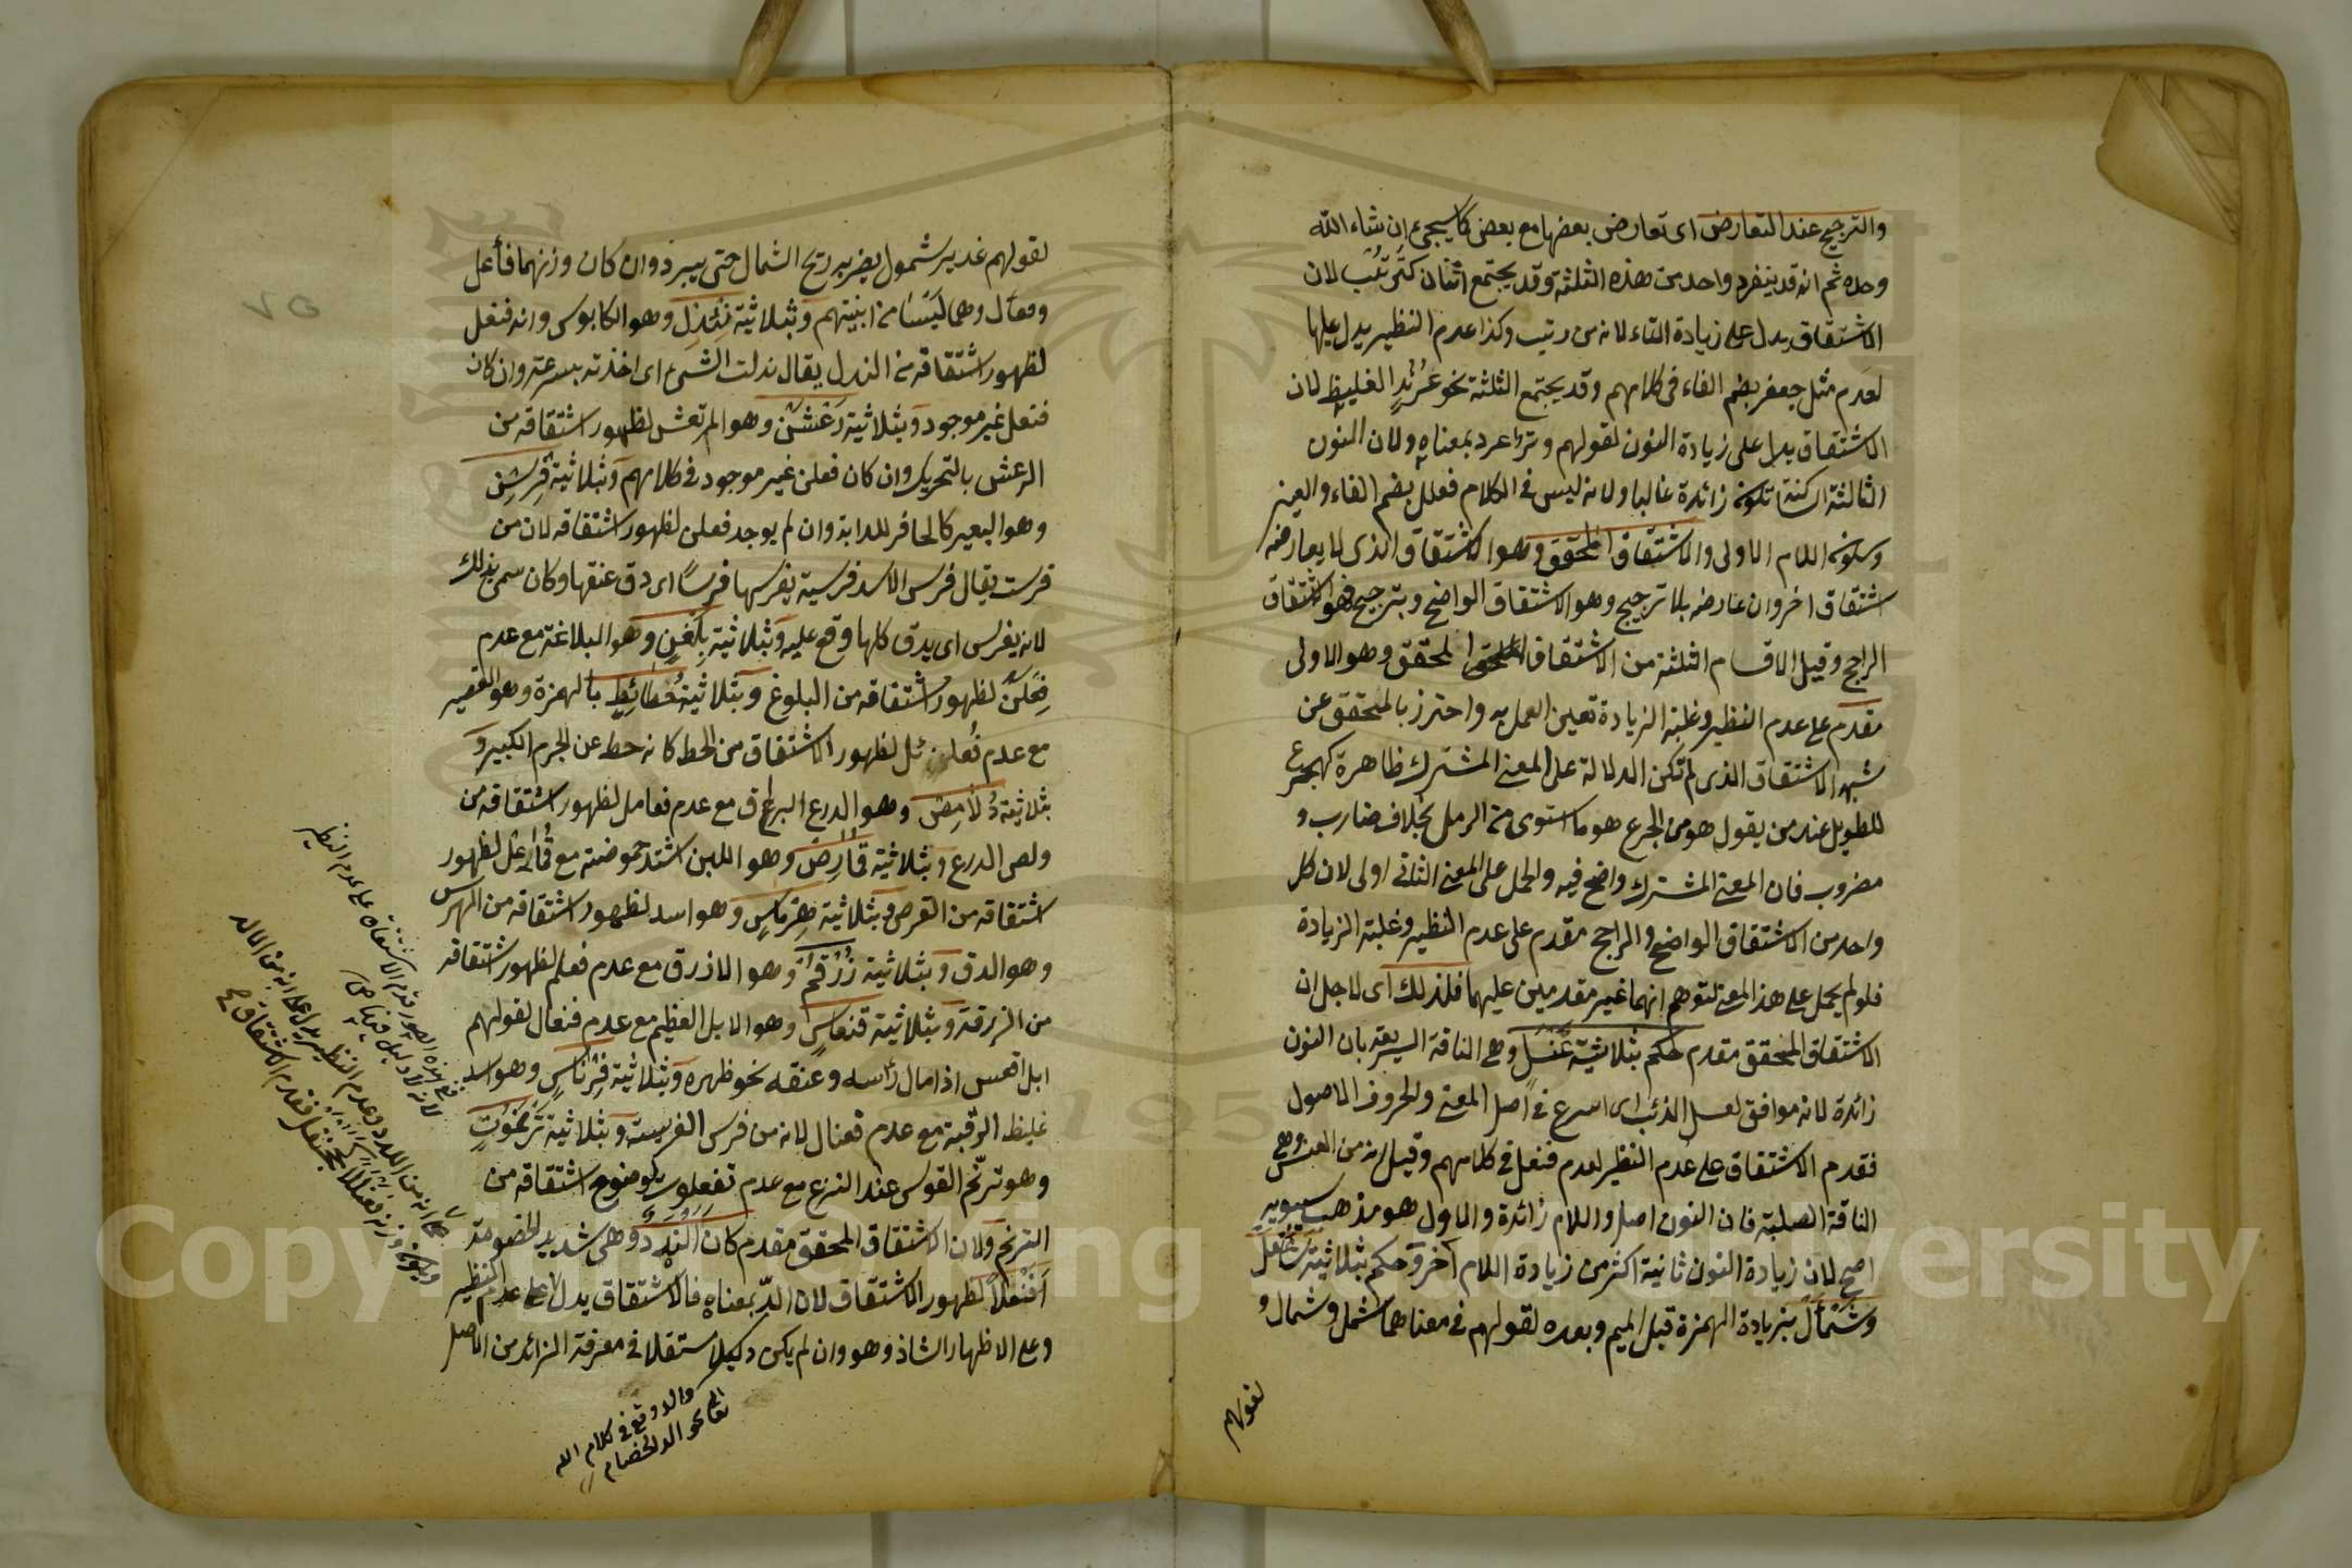 والترجيح عند التعارض اى تعارض بعضها مع بعض كما سيجئ ان شاء الله
وحده ثم انه قد ينفرد واحد من هذه الثلثة وقد يجتمع اثنان كترتب لان
الاشتقاق يدل على زيادة التاء لانه من رتيب وكذا عدم النظير يدل عليها
لعدم مثل جعفر بضم الفاء فى كلامهم وقد يجتمع الثلثة نحو عرند الغليظ لان
الاشتقاق يدل على زيادة النون لقولهم وتر عرد بمعناه ولان النون
الثالثة الساكنة تكون زائدة غالبا ولانه ليس فى الكلام فعلل بضم الفاء والعين
وسكون اللام الاولى والاشتقاق المحقق وهو الاشتقاق الذى لا يعارضه
اشتقاق اخر وان عارضه بلا ترجيح وهو الاشتقاق الواضح وبترجيح فهو اشتقاق
الراجح وقيل الاقسام الثلثة من الاشتقاق المحقق وهو الاولى
مقدم على عدم النظير وغلبة الزيادة تعين العمل به واحترز بالمحقق عن
شبهه الاشتقاق الذى لم تكن الدلالة على المعنى المشترك ظاهرة كهجرع
للطويل عند من يقول هو من الجرع هو ما استوى من الرمل بخلاف ضارب و
مضروب فان المعنى المشترك واضح فيه والحمل على المعنى الثانى اولى لان كل
واحد من الاشتقاق الواضح والراجح مقدم على عدم النظير وغلبة الزيادة
فلو لم يحمل على هذا المعنى لتوهم انهما غير مقدمين عليهما فلذلك اى لاجل ان
الاشتقاق المحقق مقدم حكم بثلاثية عنسل وهى الناقة السريعة بان النون
زائدة لانه موافق لعسل الذئب اى اسرع فى اصل المعنى والحروف الاصول
فقدم الاشتقاق على عدم النظير لعدم فنعل فى كلامهم وقيل انه من العنس وهى
الناقة الصلبة فان النون اصل واللام زائدة والاول هو مذهب سيبويه
اصح لان زيادة النون ثانية اكثر من زيادة اللام آخر وحكم بثلاثية شأمل
وشمأل بزيادة الهمزة قبل الميم وبعده لقولهم فى معناهما شمل وشمال و
لقولهم
لقولهم غدير شمول يضربه ريح الشمال حتى يبرد وان كان وزنهما فأعل
وفعأل وهما ليسا من ابنيتهم وبثلاثية نئدل وهو الكابوس وانه فنعل
لظهور اشتقاقه من الندل يقال ندلت الشئ اى اخذته بسرعة وان كان
فنعل غير موجود وبثلاثية رعشن وهو المرتعش لظهور اشتقاقه من
الرعش بالتحريك وان كان فعلن غير موجود فى كلامهم وبثلاثية فرسن
وهو البعير كالحافر للدابة وان لم يوجد فعلن لظهور اشتقاقه لان من
فرست يقال فرس الاسد فرسية يفرسها فرسا اى دق عنقها وكان سمى بذلك
لانه يفرس اى يدق كلها وقع عليه وبثلاثية بلغن وهو البلاغة مع عدم
فعلن لظهور اشتقاقه من البلوغ وبثلاثية حطائط بالهمزة وهو القصير
مع عدم لظهور الاشتقاق من الحط كانه حط عن الجرم الكبير و
بثلاثية دلامص وهو الدرع البراق مع عدم فعامل لظهور اشتقاقه من
ولص الدرع وبثلاثية قمارص وهو اللبن اشتد حموضته مع لظهور
اشتقاقه من القرص وبثلاثية هرماس وهو اسد لظهور اشتقاقه من الهرس
وهو الدق وبثلاثية زرقم وهو الازرق مع عدم فعلم لظهور اشتقاقه
من الزرقة وبثلاثية قنعاس وهو الابل العظيم مع عدم فنعال لقولهم
ابل اقعس اذا مال رأسه وعنقه نحو ظهره وبثلاثية فرناس وهو اسد
غليظ الرقبة مع عدم فعنال لانه من فرس الفريسة وبثلاثية ترنموت
وهو ترنم القوس عند النزع مع عدم تفعلوت لوضوح اشتقاقه من
الترنم ولان الاشتقاق المحقق مقدم كان الندد وهى شديد الخصومة
افنعلا لظهور الاشتقاق لان الد بمعناه فالاشتقاق يدل على عدم النظير
وعلى الاظهار الشاذ وهو وان لم يكن دليلا مستقلا فى معرفة الزائد من الاصل
والد وقع فى كلام الله
تعالى نحو الد الخصام
ففى هذه الصور قدم الاشتقاق على عدم النظير